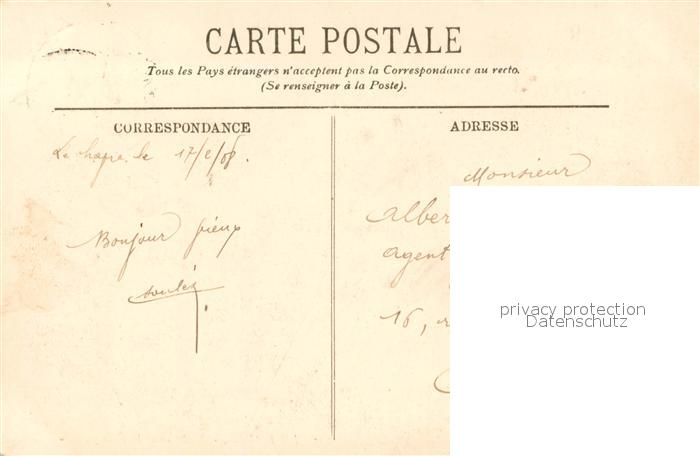 CARTE POSTALE
Tous les Pays étrangers n'acceptent pas la Correspondance au recto.
(Se renseigner à la Poste).
CORRESPONDANCE
ADRESSE
Le le 17/2/08.
Bonjour
Monsieur
Alber
agent
16, r
privacy protection
Datenschutz